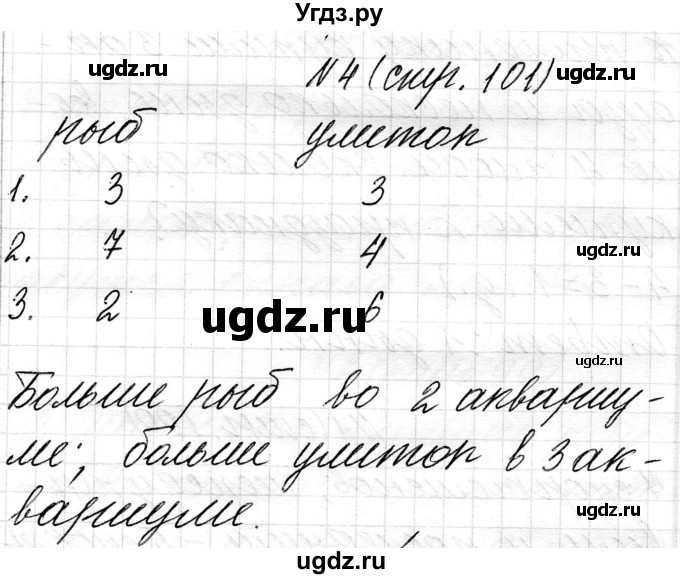 Угдз.ру
ugdz.ru №4 (стр. 101) ugdz.ru
рыб улиток
1. 3 3
2. 7 4 ugdz.ru
3. 2 6
ugdz.ru
ugdz.ru
Больше рыб во 2 аквариу-
ме; больше улиток в 3 ак-
вариуме.
ugdz.ru
ugdz.ru
ugdz.ru